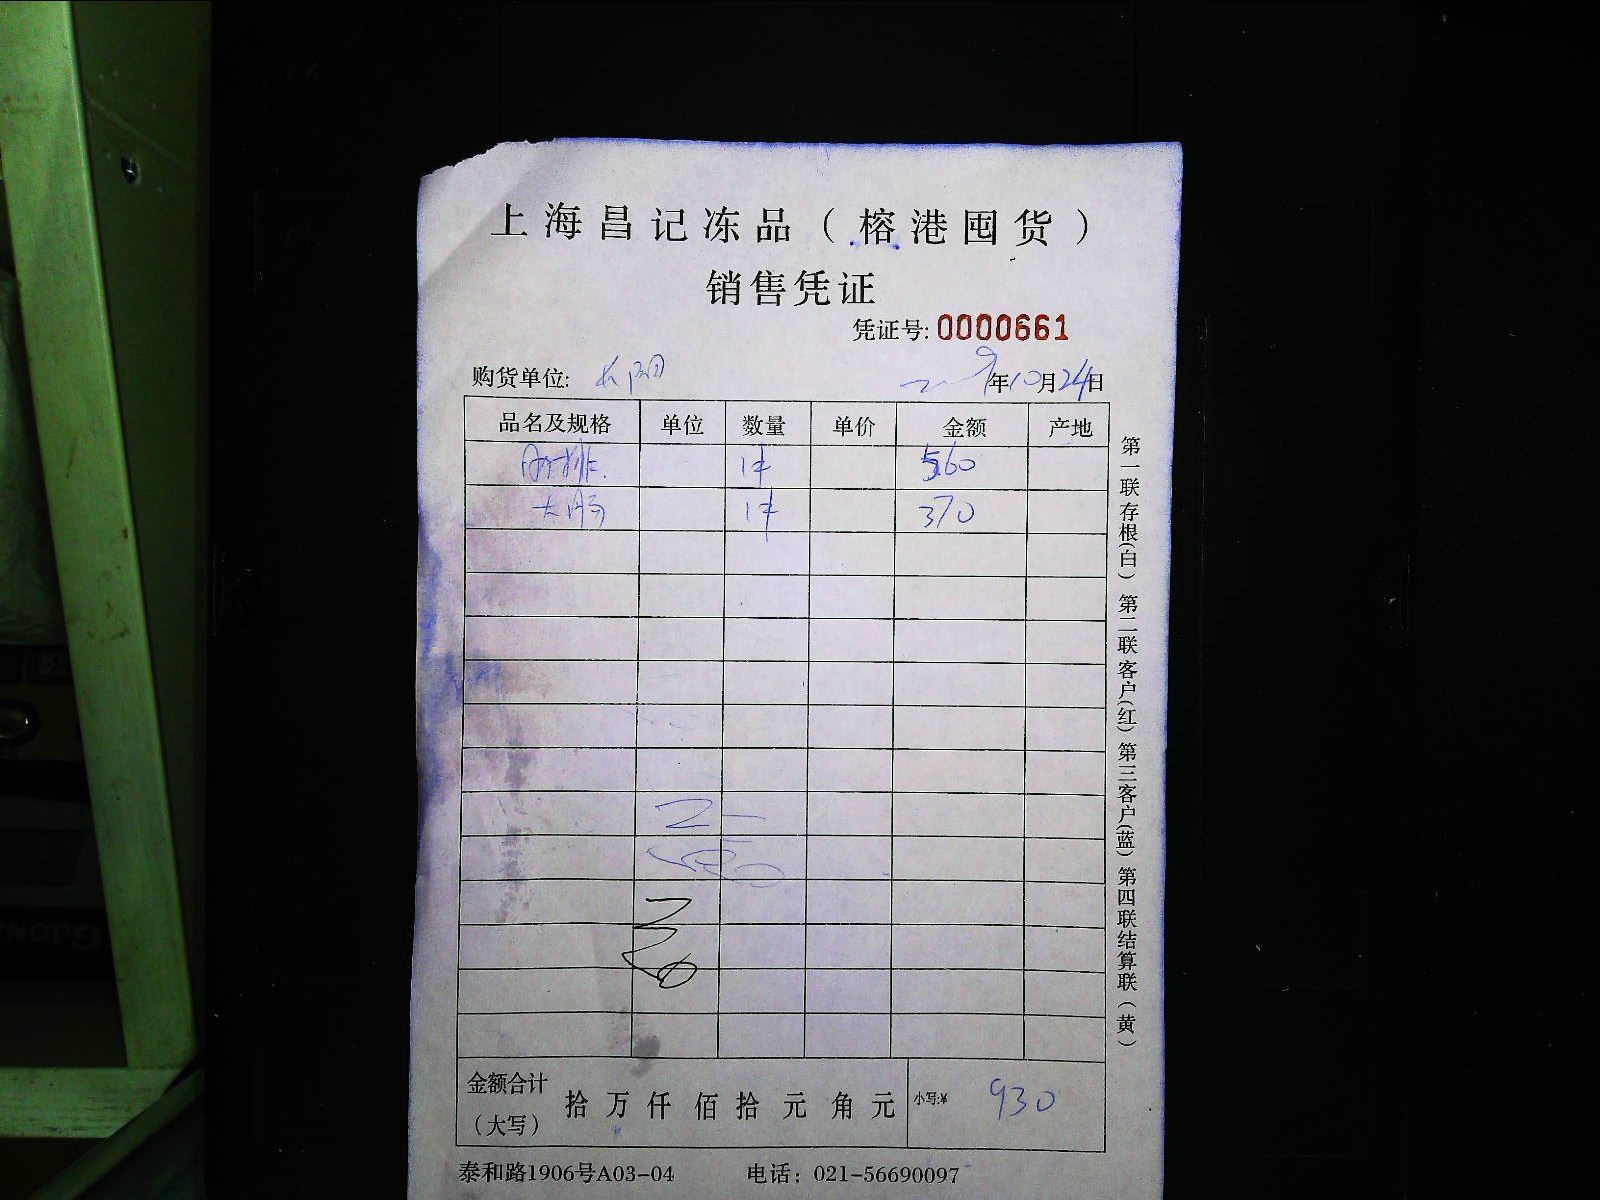 上海昌记冻品（榕港囤货）
销售凭证
凭证号: 0000661
购货单位: 长阳 年10月24日
品名及规格 单位 数量 单价 金额 产地
肋排 1件 560
大肠 1件 370
金额合计（大写） 拾 万 仟 佰 拾 元 角 元 小写:¥ 930
泰和路1906号A03-04 电话：021-56690097
第一联存根（白）第二联客户（红）第三客户（蓝）第四联结算联（黄）